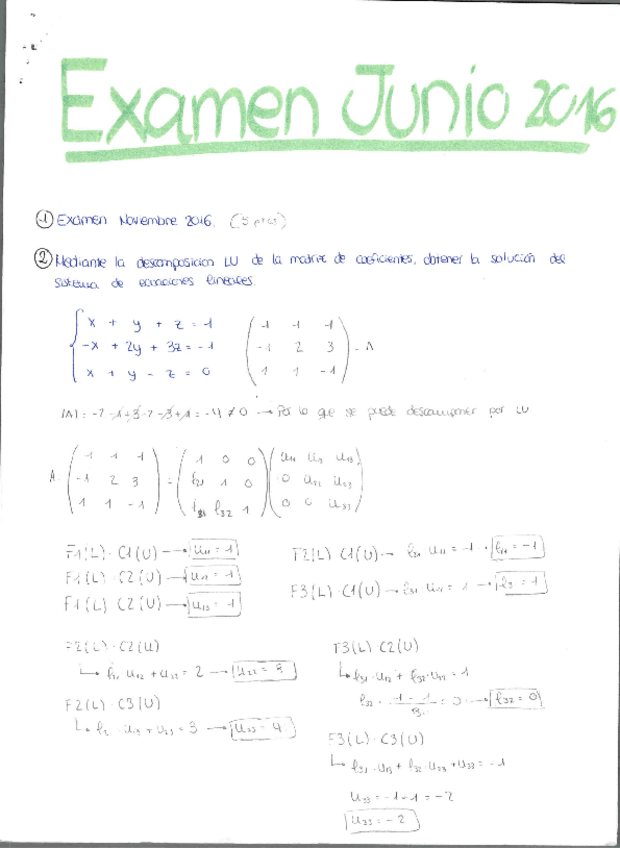 Examen Junio 2016
① Examen Novembre 2016. (5 ptos)
② Mediante la descomposicion LU de la matriz de coeficientes, obtener la solución del
sistema de ecuaciones lineales.
x + y + z = 1
-x + 2y + 3z = -1
x + y - z = 0
( 1 1 1
-1 2 3
1 1 -1 ) = A
|A| = -2 -1+3-2-3+1 = -4 ≠ 0 → Por lo que se puede descomponer por LU
A = ( 1 1 1
-1 2 3
1 1 -1 ) = ( 1 0 0
l21 1 0
l31 l32 1 ) ( u11 u12 u13
0 u22 u23
0 0 u33 )
F1(L) · C1(U) → u11 = 1
F1(L) · C2(U) → u12 = 1
F1(L) C2(U) → u13 = 1
F2(L) C1(U) → l21 u11 = -1 → = -1
F3(L) · C1(U) → l31 u11 = 1 → = 1
F2(L) · C2(U)
↳ l21 u12 + u22 = 2 → u22 = 3
F2(L) · C3(U)
↳ · u13 + u23 = 3 → u23 = 4
F3(L) C2(U)
↳ l31 · u12 + l32 · u22 = 1
l32 = 1 - 1 / 3 = 0 → l32 = 0
F3(L) · C3(U)
↳ l31 · u13 + l32 · u23 + u33 = -1
u33 = -1 -1 = -2
u33 = -2